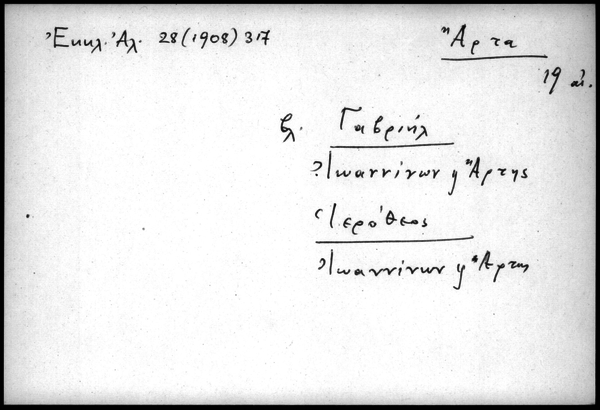 Ἐκκλ. Ἀλ. 28 (1908) 317
Ἄρτα
19 αἰ.
βλ. Γαβριήλ
Ἰωαννίνων ἢ Ἄρτης
Ἱερόθεος
Ἰωαννίνων ἢ Ἄρτης